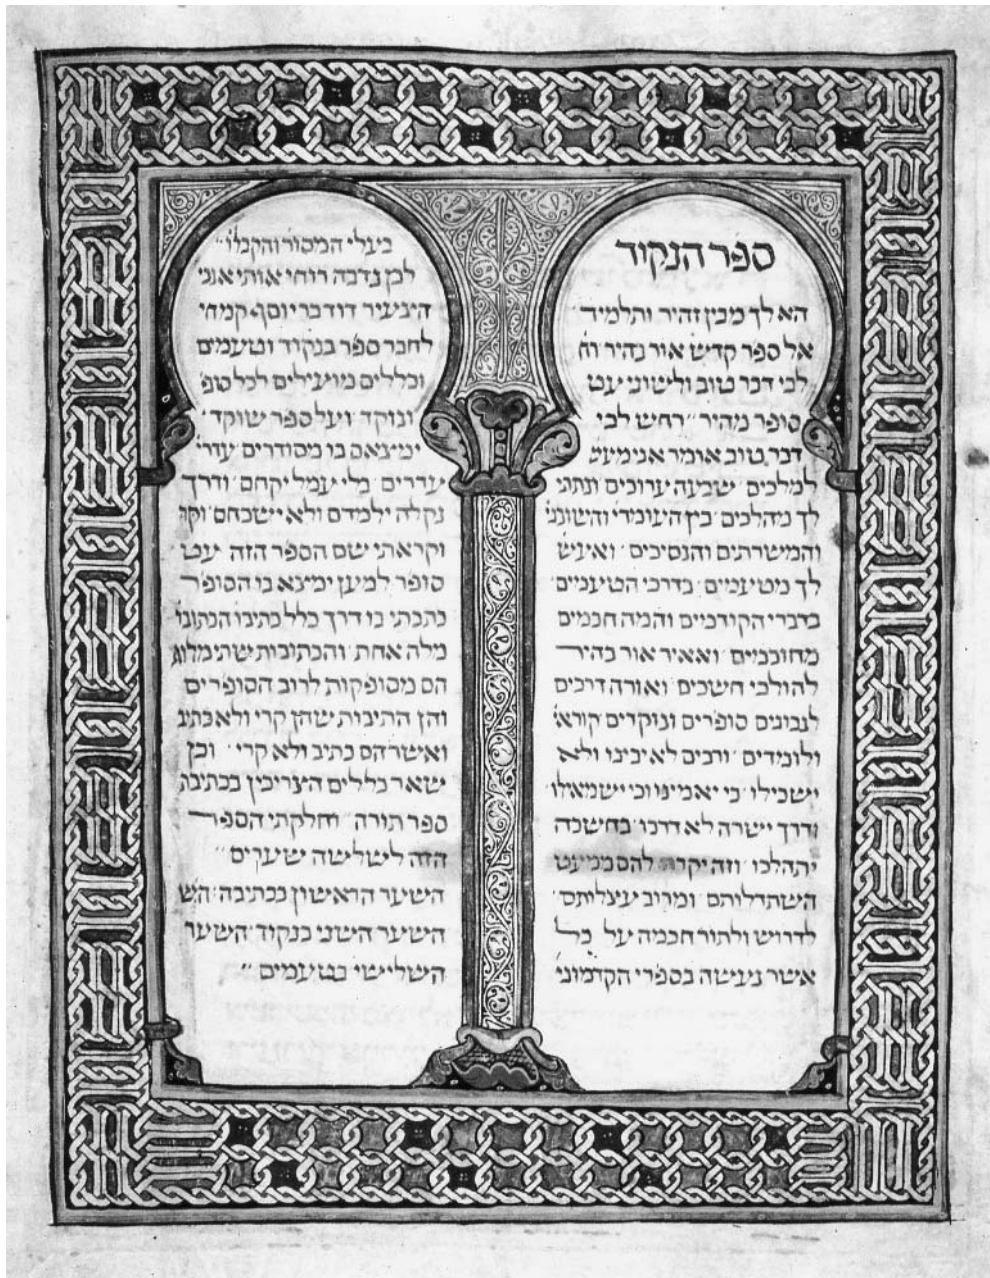 ספר הנקוד
הא לך מבין זהיר ותלמיד
אל ספר קדש אור נהיר וח
לבי דבר טוב ולשוני עט
סופר מהיר רחש לבי
דבר טוב אומר אני מעש
למלכים שבעה ערוכים ונתתי
לך מהלכים בין העומדי והשוכני
והמשרתים והנסיכים ואעש
לך מטעמים בדרכי הטעמים
כדברי הקודמים והמה חכמים
מחוכמים ואאיר אור בהיר
להולכי חשכים ואורה דרכים
לנבונים סופרים ונוקדים קוראי
ולומדים ורבים לא יבינו ולא
ישכילו כי יאמינו וכי ישמאילו
ודרך ישרה לא דרכו בחשכה
יתהלכו וזה יקרה להם ממעט
השתדלותם ומרוב עצלותם
לדרוש ולתור חכמה על כל
אשר נעשה בספרי הקדמוני
בעלי המסור והקבלו
לכן נדבה רוחי אותי אני
הצעיר דוד בר יוסף קמחי
לחבר ספר בנקוד וטעמים
וכללים מועילים לכל סופ
ונוקד ועל ספר שוקד
ימצאם בו מסודרים עדרי
עדרים בלי עמל יקחם ודרך
נקלה ילמדם ולא ישכחם
וקראתי שם הספר הזה עט
סופר למען ימצא בו הסופר
כתבתי בו דרך כלל כתיבו הכתובו
מלה אחת והכתובות שתי מלות
הם מסופקות לרוב הסופרים
והן התיבות שהן קרי ולא כתיב
ואשר הם כתיב ולא קרי וכן
שאר כללים הצריכין בכתיבת
ספר תורה וחלקתי הספר
הזה לשלישה שערים
השער הראשון בכתיבה הש
השער השני בנקוד השער
השלישי בטעמים